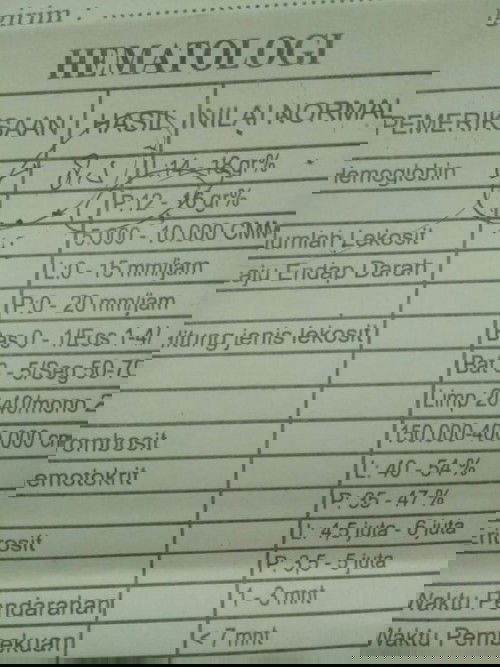 HEMATOLOGI
PEMERIKSAAN HASIL NILAI NORMAL
14 - 18 gr%
P:12 - 16 gr%
5.000 - 10.000 CMM Jumlah Lekosit
L:0 - 15 mm/jam aju Endap Darah
P:0 - 20 mm/jam
as 0 - 1/Eos 1-4/ Hitung jenis lekosit
Bat 2 - 5/Seg 50-70
Limp 20 40/mono 2
150.000-400.000 cm Trombosit
emotokrit L: 40 - 54 %
P: 35 - 47 %
L: 4,5 juta - 6 juta
rosit P: 3,5 - 5 juta
endarahan 1 - 3 mnt Waktu Pe
ekuan < 7 mnt Waktu Pem